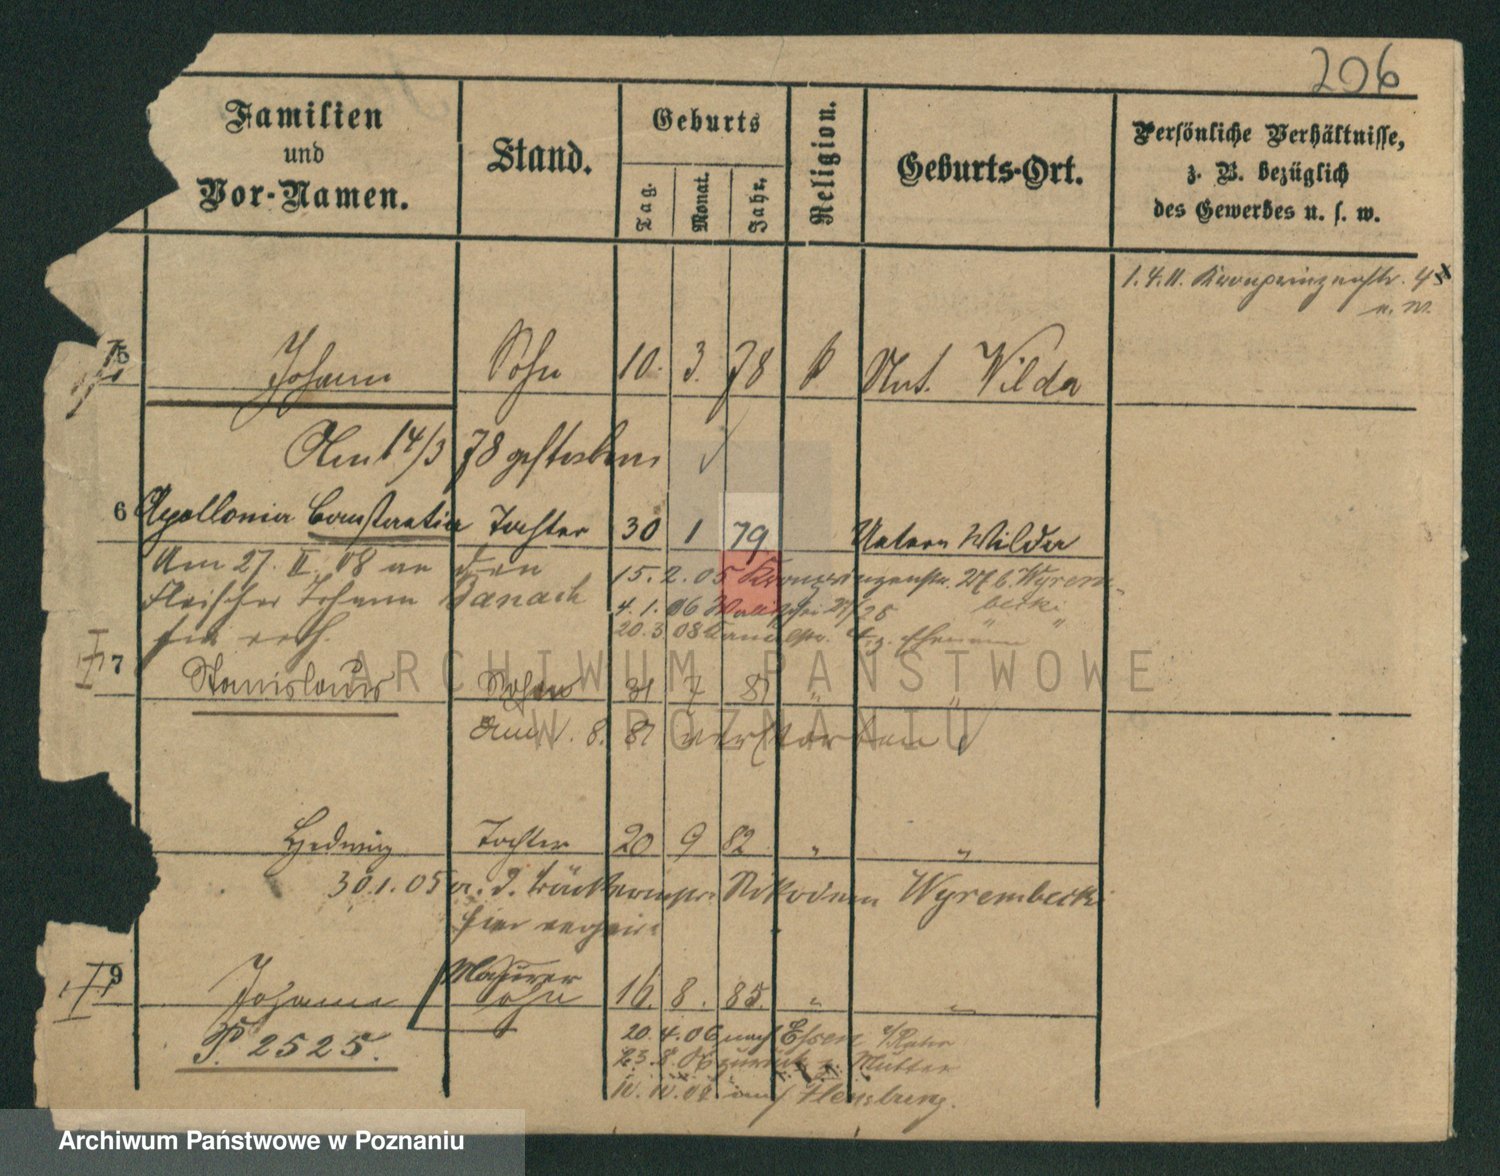 206
Familien
und
Vor-Namen.
Stand.
Geburts
Tag.
Monat.
Jahr.
Religion.
Geburts-Ort.
Persönliche Verhältnisse,
z. B. bezüglich
des Gewerbes u. s. w.
1.4.11. Kronprinzenstr.
5
Johann Sohn 10. 3. 78 k Unt. Wilda
Am 14/3 78 gestorben
6 Apollonia Constantia Tochter 30 1 79 Untere Wilda
Am 27. II. 08 an den
Fleischer Johann Banach
hier verh.
15.2.05 Kronprinzenstr. 27 b. Wyrem-
becki
4.1.06 Wallischei 27/28
20.3.08 Kanalstr. 4 z. Ehemann
7 Stanislaus Sohn 31 7 81 " "
am 8. 81 verstorben
Hedwig Tochter 20 9 82 " "
30.1.05 a. d. Bäckermstr. Nikodem Wyrembecki
hier verheir.
9 Maurer
Johann Sohn 16. 8. 85. " "
P. 2525.
20.4.06 nach Essen a/Ruhr
23.8.06 zurück z. Mutter
auf Flensburg.
ARCHIWUM PAŃSTWOWE
W POZNANIU
Archiwum Państwowe w Poznaniu